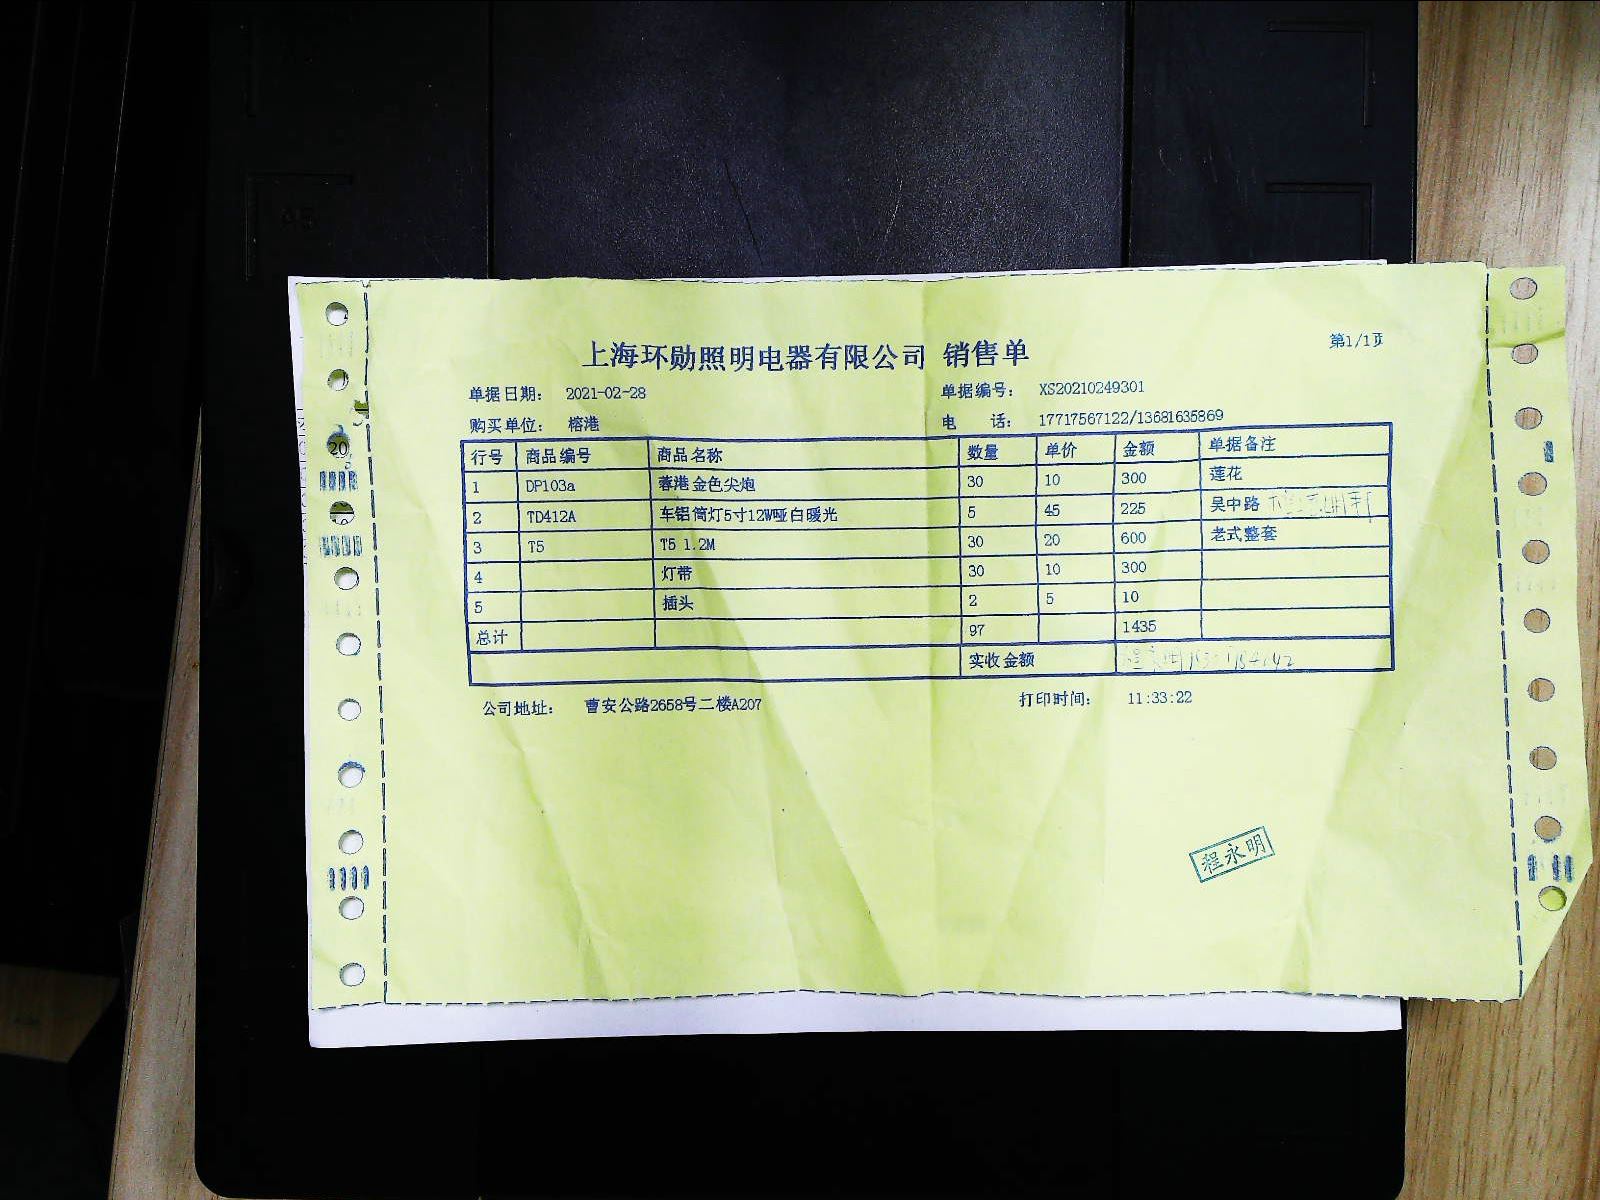 上海环勋照明电器有限公司 销售单
第1/1页
单据日期： 2021-02-28 单据编号： XS20210249301
购买单位： 榕港 电 话： 17717567122/13681635869
行号 商品编号 商品名称 数量 单价 金额 单据备注
1 DP103a 蓉港金色尖炮 30 10 300 莲花
2 TD412A 车铝筒灯5寸12W哑白暖光 5 45 225 吴中路
3 T5 T5 1.2M 30 20 600 老式整套
4 灯带 30 10 300
5 插头 2 5 10
总计 97 1435
实收金额
公司地址： 曹安公路2658号二楼A207 打印时间： 11:33:22
程永明
20